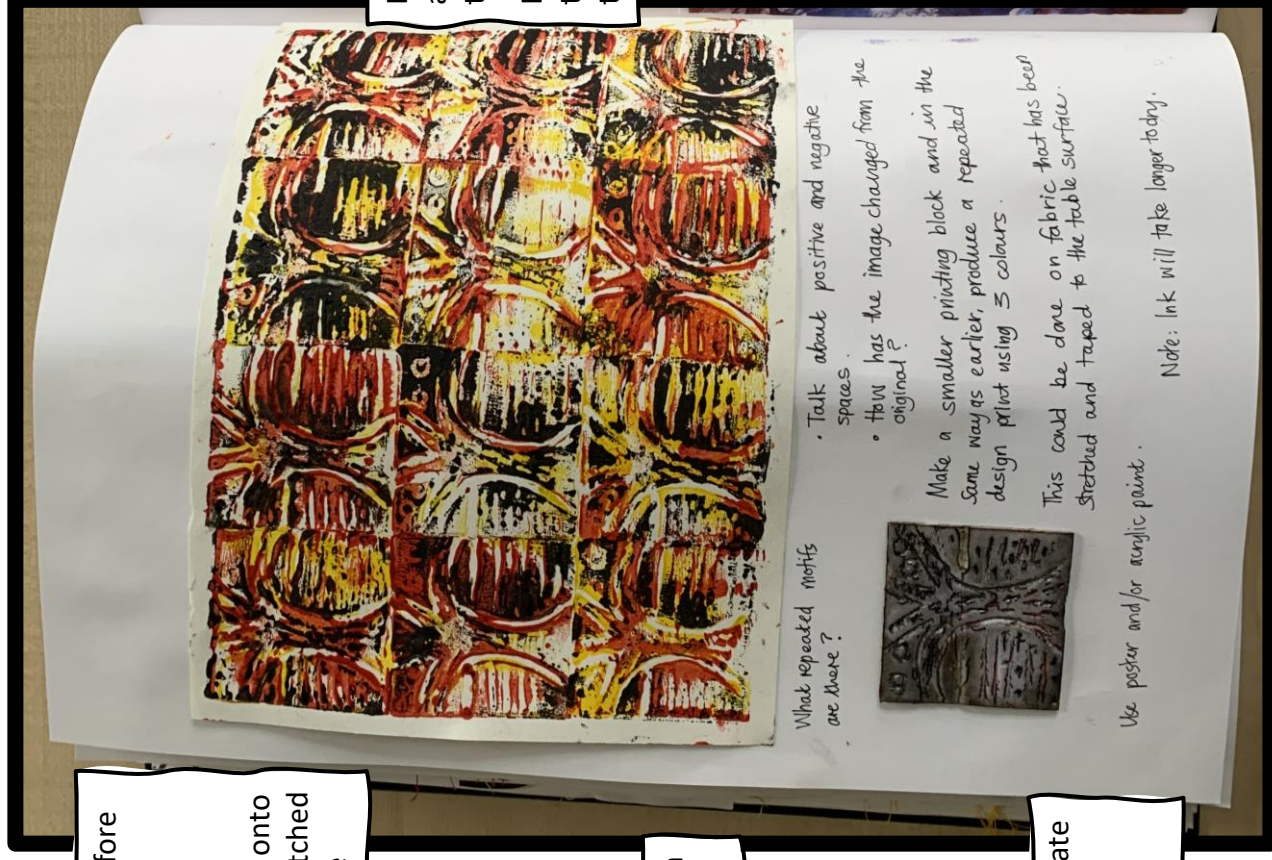 fore
onto
tched
ate
What repeated motifs
are there?
• Talk about positive and negative
spaces.
• How has the image changed from the
original?
Make a smaller printing block and in the
same way as earlier, produce a repeated
design print using 3 colours.
This could be done on fabric that has been
stretched and taped to the table surface.
Use poster and/or acrylic paint.
Note: Ink will take longer to dry.